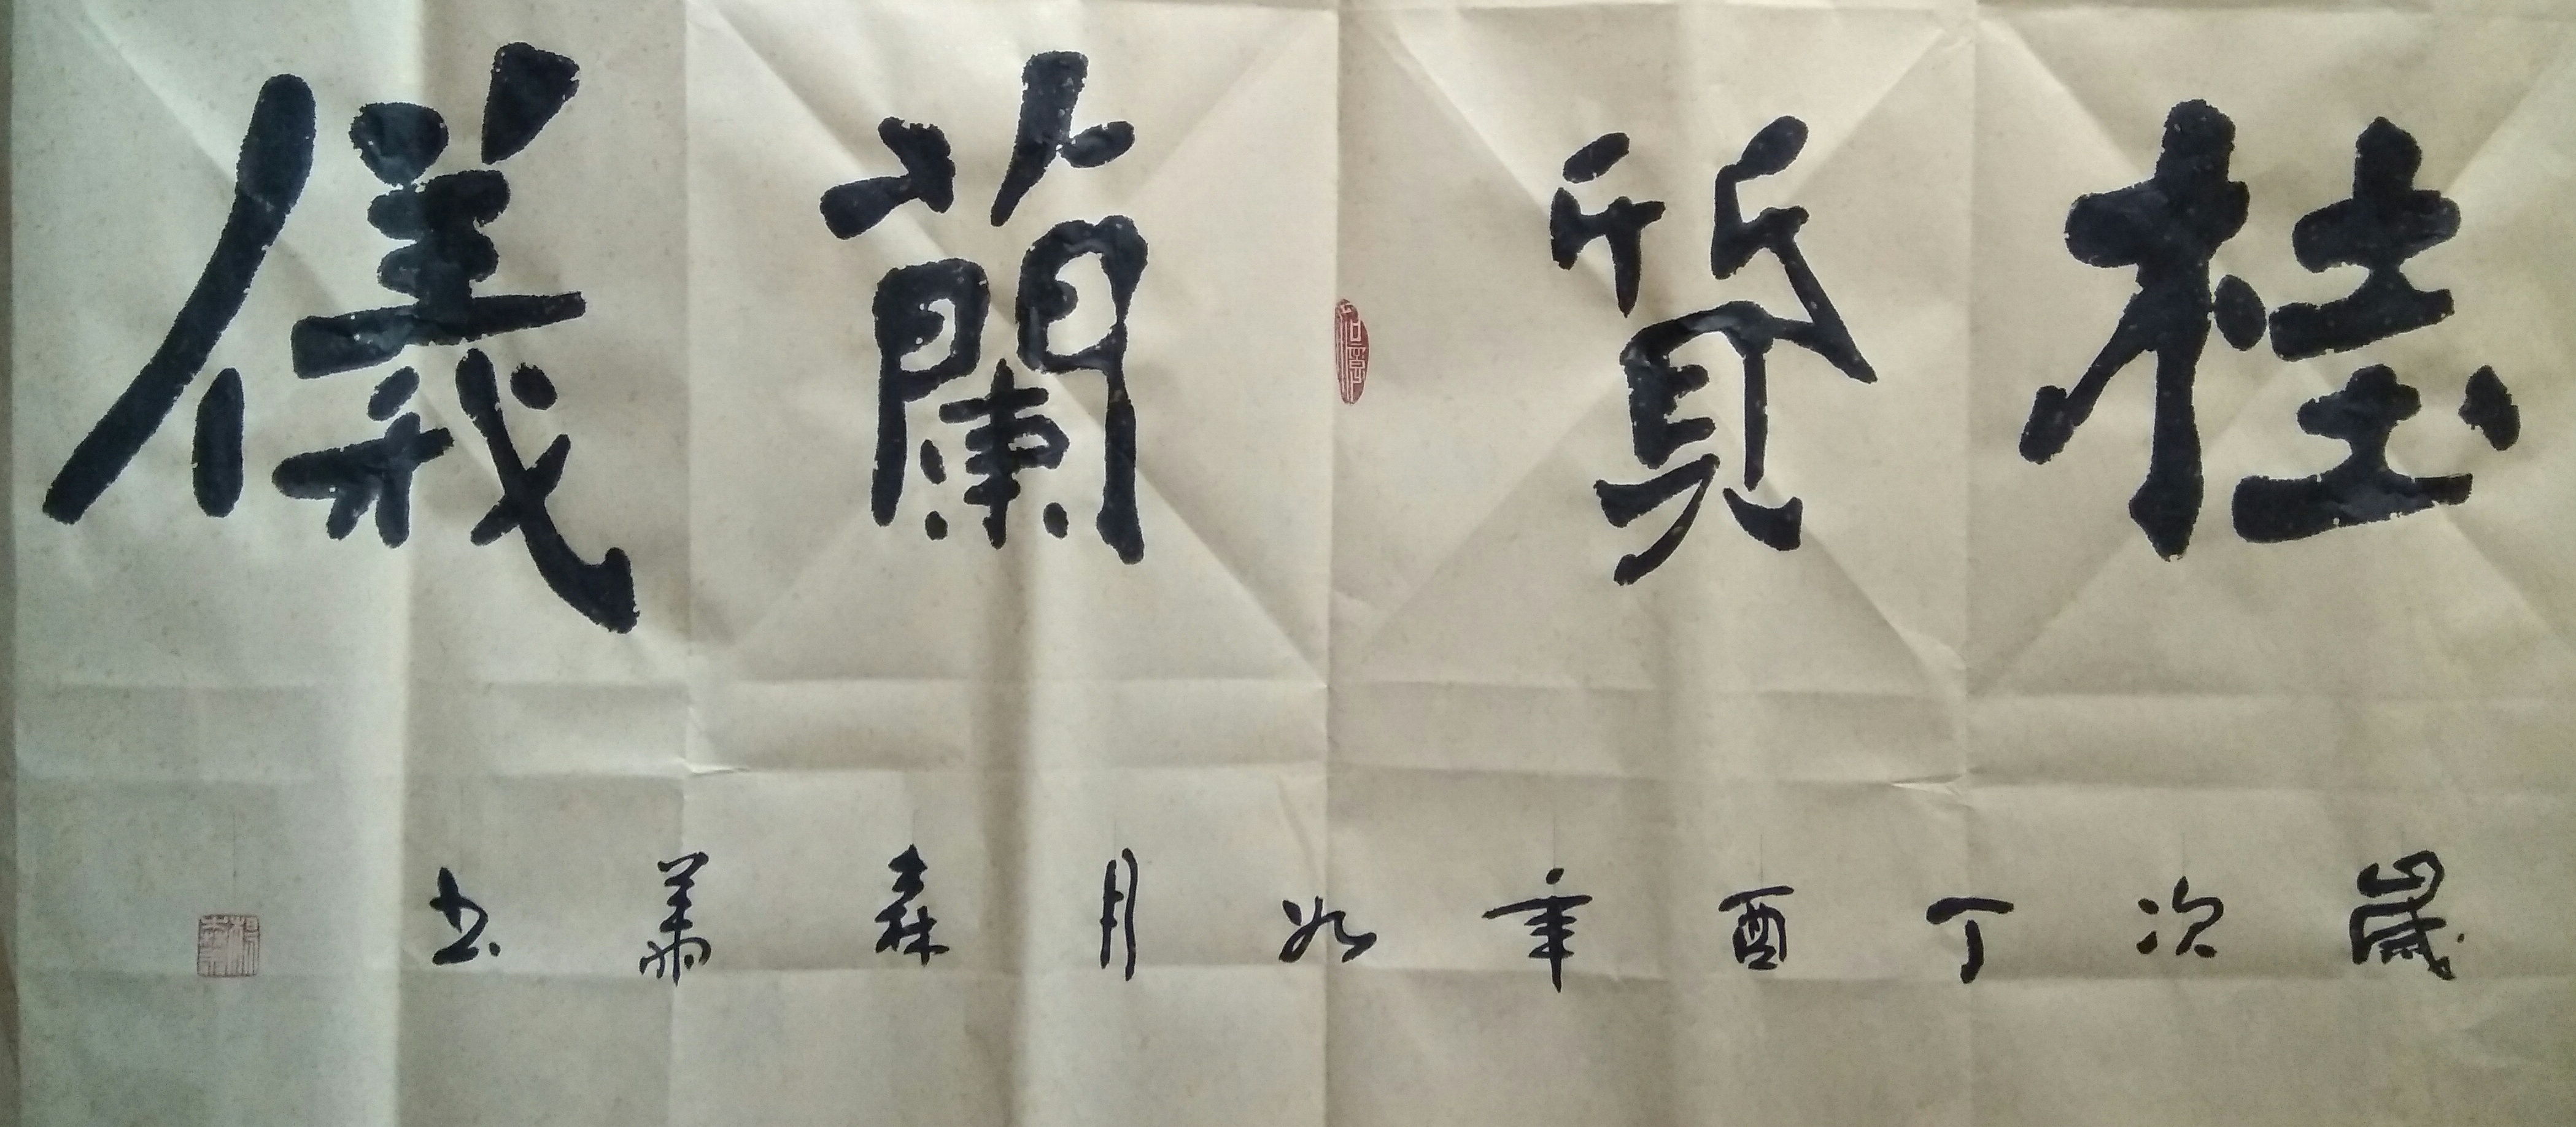 桂質蘭儀
歲次丁酉年如月森華书